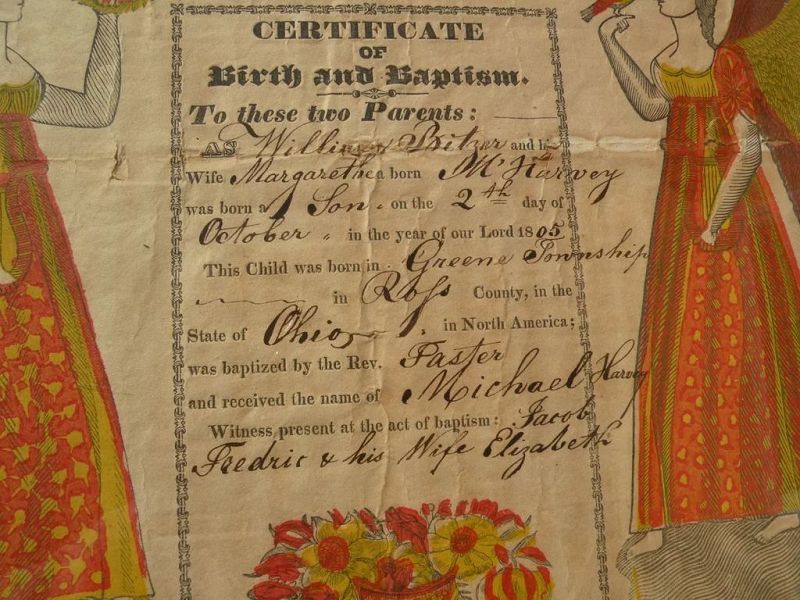 CERTIFICATE
OF
Birth and Baptism.
To these two Parents:
AS William Spitzer and h
Wife Margarethea born McHarvey
was born a Son on the 24th day of
October in the year of our Lord 1805
This Child was born in Greene Township
in Ross County, in the
State of Ohio in North America;
was baptized by the Rev. Faster
and received the name of Michael Harvey
Witness present at the act of baptism: Jacob
Fredric & his Wife Elizabeth